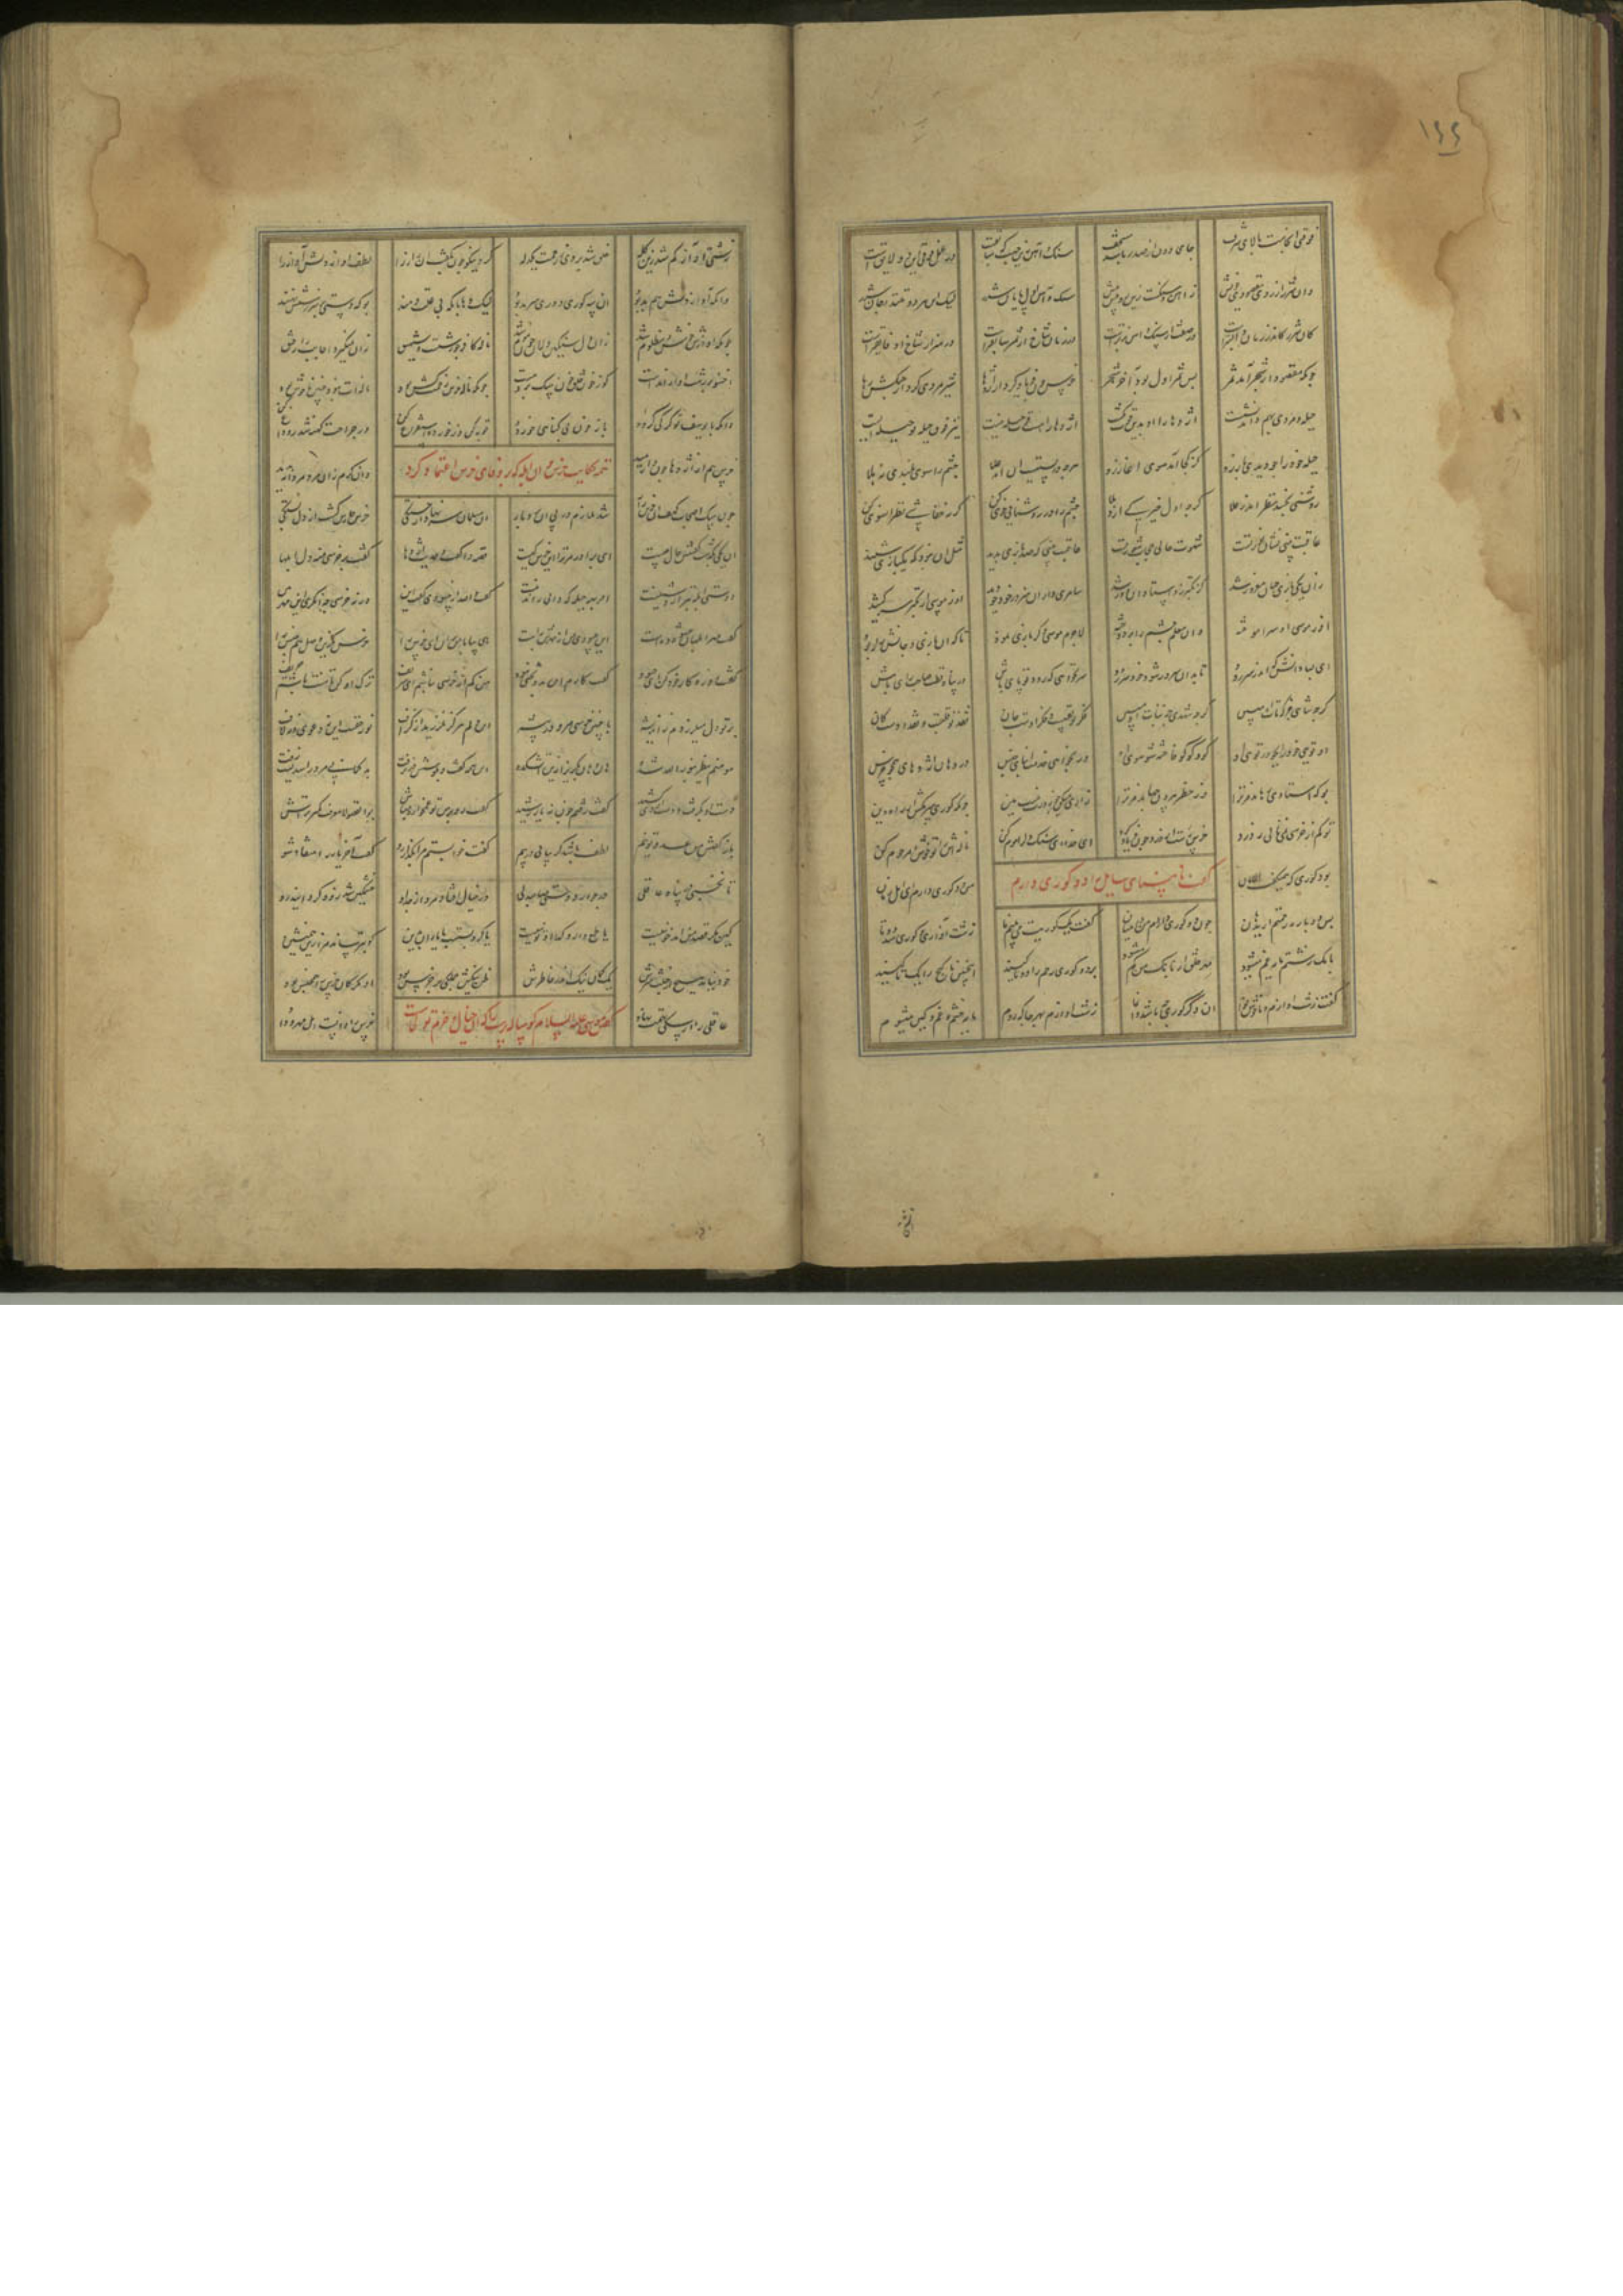 ۱۶۶
فوقی آنجاست بالای شرف جای دور از صدر باشد مستخف سنک و آهن زین جهت که سابقست در عمل فوقی این دو لایقست
وان شرر از روی مقصودی خویش ز آهن و سنکست زین رو پیش پیش سنک و آهن اول و پایان شرر لیک این هر دو تنند و جان شرر
کان شرر کاندر زمان واپسترست در صفت از سنک و آهن برترست در زمان شاخ از ثمر سابقترست در هنر از شاخ او فایقترست
چونکه مقصود از شجر آمد ثمر پس ثمر اول بود آخر شجر خرس چون فریاد کرد از اژدها شیرمردی کرد از چنکش رها
حیله و مردی بهم دادند پشت اژدها را او بدین قوت بکشت اژدها را هست قوت حیله نیست نیز فوق حیله تو حیله ایست
حیله خود را چو دیدی باز رو کز کجا آمد سوی آغاز رو هرچه در پستیست آن آمد از علا چشم را سوی بلندی نه هلا
روشنی بخشد نظر اندر علا کرچه اول خیرکی آرد بلا چشم را در روشنایی خوی کن کر نه خفاشی نظر آن سوی کن
عاقبت بینی نشان نور تست شهوت حالی حقیقت کور تست عاقبت بینی که صد بازی بدید مثل آن نبود که یک بازی شنید
زان یکی بازی چنان مغرور شد کز تکبر ز اوستادان دور شد سامری وار آن هنر در خود چو دید او ز موسی از تکبر سر کشید
او ز موسی آن هنر آموخته وز معلم چشم را بردوخته لاجرم موسی دکر بازی نمود تا که آن بازی و جانش را ربود
ای بسا دانش که اندر سر دود تا بدان سرور شود خود سر رود سر نخواهی که رود تو پای باش در پناه قطب صاحب رای باش
کرچه شاهی خویش فوق او مبین کرچه شهدی جز نبات او مچین فکر تو نقشست و فکر اوست جان نقد تو قلبست و نقد اوست کان
او تویی خود را بجو در اوی او کو و کو کو فاخته شو سوی او ور نخواهی خدمت ابنای جنس در دهان اژدهایی همچو خرس
بوکه استادی رهاند مر ترا وز خطر بیرون کشاند مر ترا زاریی میکن چو زورت نیست هین چونکه کوری سر مکش از راه بین
تو کم از خرسی نمی نالی ز درد خرس رست از درد چون فریاد کرد ای خدا این سنک دل را موم کن ناله اش را تو خوش و مرحوم کن
کفتن نابینای سایل که دو کوری دارم
بود کوری که همی کفت الامان من دو کوری دارم ای اهل زمان
پس دوباره رحمتم آرید هان چون دو کوری دارم و من در میان کفت یک کوریت می بینیم ما زشت آوازی و کوری شد دوتا
بانک زشتم مایه غم میشود مهر خلق از بانک من کم میشود بر دو کوری رحم را دوتا کنید اینچنین ناکنج را کنجا کنید
کفت زشت آوازم آن دکر کوری چه باشد وانما زشت آوازم بهر جا که رود مایه خشم و غم و کین میشود
زشتی آواز کم شد زین کله خلق شد بر وی برحمت یکدله کرد نیکو چون بکفت او راز را لطف آواز دلش آواز را
وانکه آواز دلش هم بد بود آن سه کوری دوری سرمد بود لیک وهابان که بی علت دهند بوکه دستی بر سر زشتش نهند
چونکه آوازش خوش و مظلوم شد زان دل سنکین دلان چون موم شد ناله کافر چو زشتست و شهیق زان نمیکردد اجابت را رفیق
اخسؤا بر زشت آواز آمدست کو ز خون خلق چون سک بود مست چونکه ناله خرس رحمت کش بود ناله ات نبود چنین ناخوش بود
دانکه با یوسف تو کرکی کرده یا ز خون بی کناهی خورده توبه کن وز خورده استفراغ کن ور جراحت کهنه شد رو داغ کن
تتمه حکایت خرس و آن ابله که بر وفای خرس اعتماد کرد
خرس هم از اژدها چون وارهید وان کرم زان مرد مردانه بدید
چون سک اصحاب کهف آن خرس زار شد ملازم در پی آن بردبار آن مسلمان سر نهاد از خستکی خرس حارس کشت از دل بستکی
آن یکی بکذشت و کفتش حال چیست ای برادر مر ترا این خرس کیست قصه واکفت و حدیث اژدها کفت بر خرسی منه دل ابلها
دوستی ابله بتر از دشمنیست او بهر حیله که دانی راندنیست کفت والله از حسودی کفت این ورنه خرسی چه نکری این مهر بین
کفت مهر ابلهان عشوه ده است این حسودی من از مهرش به است هی بیا با من بران این خرس را خرس مکزین مهل همجنس را
کفت رو رو کار خود کن ای حسود کفت کارم این بد و بختت نبود من کم از خرسی نباشم ای شریف ترک او کن تا منت باشم حریف
بر تو دل میلرزدم ز اندیشه با چنین خرسی مرو در بیشه این دلم هرکز نلرزید از کزاف نور حقست این نه دعوی و نه لاف
مومنم ینظر بنور الله شده هان و هان بکریز ازین آتشکده این همه کفت و بکوشش در نرفت بدکمانی مرد را سدیست زفت
دست او بکرفت و دست از وی کشید کفت رفتم چون نه یار رشید کفت رو بر من تو غمخواره مباش بوالفضولا معرفت کمتر تراش
باز کفتش من عدوی تو نیم لطف باشد کر بیایی در پیم کفت خوابستم مرا بکذار رو کفت آخر یار را منقاد شو
تا بخسپی در پناه عاقلی در جوار دوستی صاحب دلی در خیال افتاد مرد از جد او خشمکین شد زود کردانید رو
کین مکر قصد من آمد خونیست یا طمع دارد کدا و تونیست یا کرو بستست با یاران بدین کو بترساند مرا زین همنشین
خود نیامد هیچ از خبث سرش یک کمان نیک اندر خاطرش ظن نیکش جملکی بر خرس بود او مکر مر خرس را همجنس بود
عاقلی را از سکی تهمت نهاد خرس را دانست اهل مهر و داد
کفتن موسی علیه السلام کوساله پرست را که آن خیال و حزم تو کجاست
زشتی